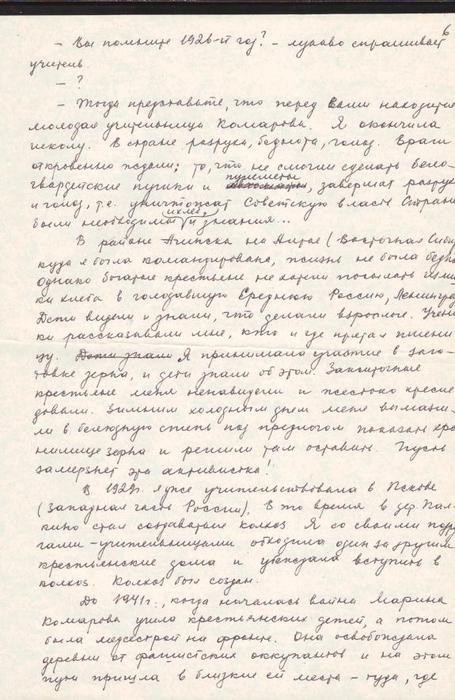 6
– Вы помните 1926-й год? – лукаво спрашивает
учитель.
– ?
– Тогда представьте, что перед вами находится
молодая учительница Комарова. Я окончила
школу. В стране разруха, беднота, голод. Враги
откровенно ждали; то, что не смогли сделать бело-
гвардейские пушки и пулеметы, завершат разруха
и голод, т.е. уничтожат Советскую власть. Стране
были необходимы и хлеб, и знания...
В районе Ачинска на (Восточная Сибирь
куда я была командирована, жизнь не была бедна
Однако богатые крестьяне не хотели посылать излиш-
ки хлеба в голодавшую Среднюю Россию, Ленинград
Дети видели и знали, что делали взрослые. Учени-
ки рассказывали мне, кто и где прятал пшени-
цу. Дети знали Я принимала участие в заго-
товке зерна, и дети знали об этом. Зажиточные
крестьяне меня ненавидели и жестоко пресле-
довали. Зимним холодным днем меня вымани-
ли в безлюдную степь под предлогом показать хра-
нилище зерна и решили там оставить. Пусть
замерзнет эта активистка!
В 1929г. я уже учительствовала в Пскове
(Западная часть России). В это время в дер. Пал-
кино стал создаваться колхоз. Я со своими подру-
гами-учительницами обходила один за другим
крестьянские дома и убеждала вступить в
колхоз. Колхоз был создан.
До 1941г., когда началась война Марина
Комарова учила крестьянских детей, а потом
была медсестрой на фронте. Она освобождала
деревни от фашистских оккупантов и на этом
пути пришла в близкие ей места – туда, где